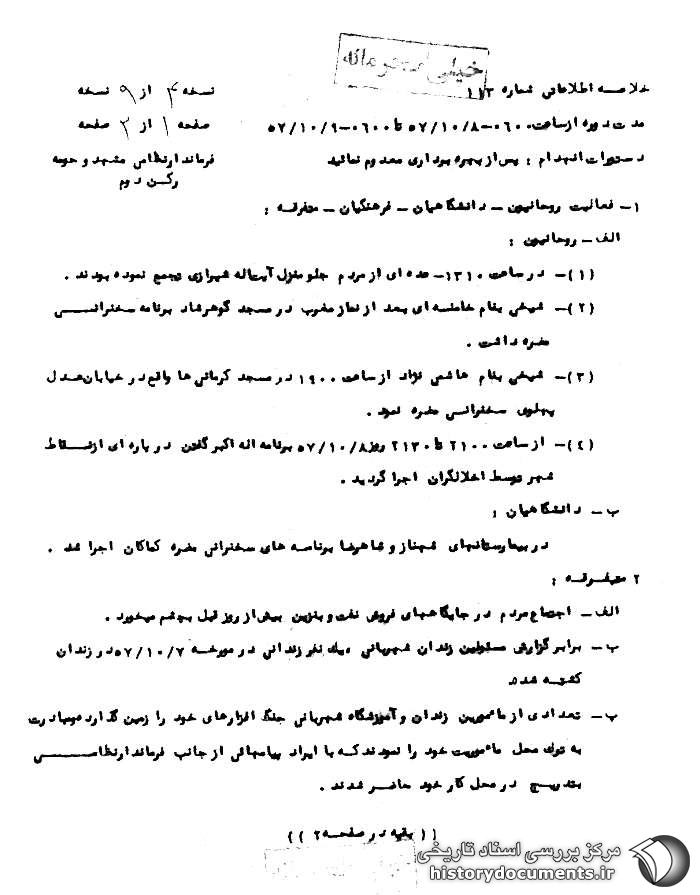 خیلی محرمانه
خلاصه اطلاعاتی شماره ۱۱۳
نسخه ۴ از ۹ نسخه
مدت دوره از ساعت ۰۶۰۰-۵۷/۱۰/۸ تا ۰۶۰۰-۵۷/۱۰/۹
صفحه ۱ از ۲ صفحه
دستورات انهدام : پس از بهره برداری معدوم نمائید
فرماندارنظامی مشهد و حومه
رکن دوم
۱- فعالیت روحانیون - دانشگاهیان - فرهنگیان - متفرقه :
الف - روحانیون :
(۱)- در ساعت ۱۳۱۰- عده ای از مردم جلو منزل آیت‌اله شیرازی تجمع نموده بودند .
(۲)- شیخی بنام خامنه ای بعد از نماز مغرب در مسجد گوهرشاد برنامه سخنرانی
مضره داشت .
(۳)- شیخی بنام هاشمی نژاد از ساعت ۱۹۰۰ در مسجد کرمانی ها واقع در خیابان عدل
پهلوی سخنرانی مضره نمود .
(۴)- از ساعت ۲۱۰۰ تا ۲۱۳۰ روز ۵۷/۱۰/۸ برنامه اله اکبر گفتن در پاره ای از نقاط
شهر توسط اخلالگران اجرا گردید .
ب - دانشگاهیان :
در بیمارستانهای شهناز و شاهرضا برنامه های سخنرانی مضره کماکان اجرا شد .
۲ متفرقه :
الف - اجتماع مردم در جایگاههای فروش نفت و بنزین بیش از روز قبل بچشم میخورد .
ب - برابر گزارش مسئولین زندان شهربانی دیک نفر زندانی در مورخه ۵۷/۱۰/۷ در زندان
کشته شد
پ - تعدادی از مامورین زندان و آموزشگاه شهربانی جنگ افزارهای خود را زمین گذارده و مبادرت
به ترک محل ماموریت خود را نمودند که با ایراد پیامهائی از جانب فرماندارنظامی
بتدریج در محل کار خود حاضر شدند .
(( بقیه در صفحه ۲ ))
مرکز بررسی اسناد تاریخی
historydocuments.ir